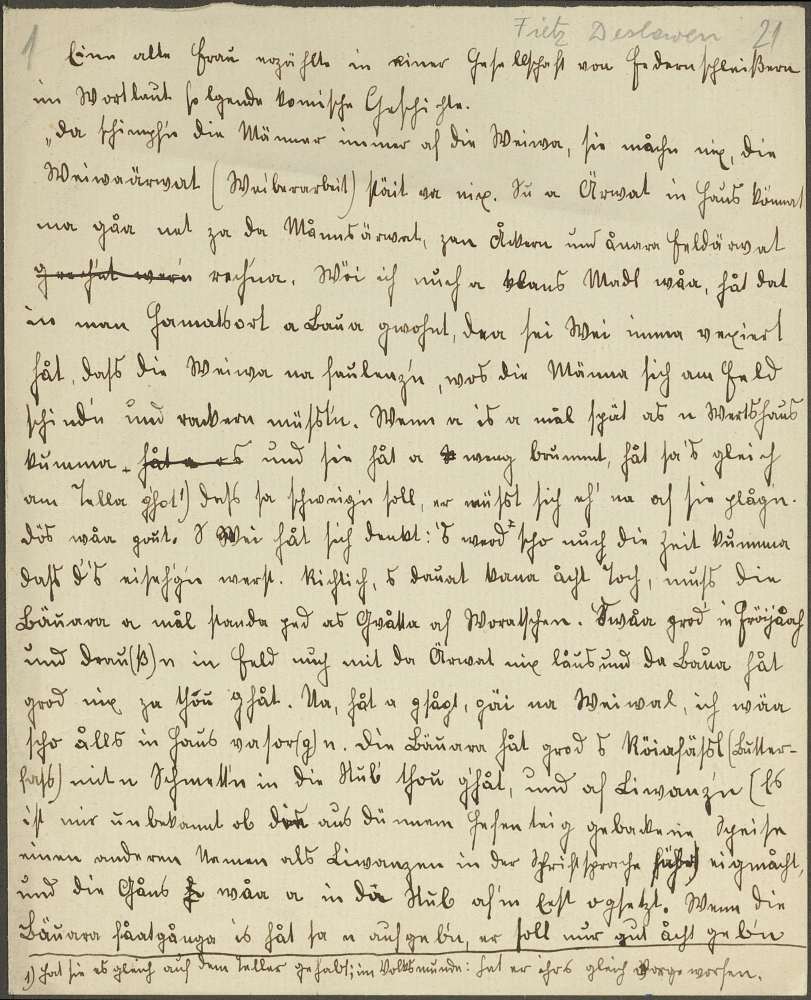 1 Fietz Deslawen 21
Eine alte Frau erzählte in einer Gesellschaft von Federnschleißern
im Wortlaut folgende komische Geschichte.
„Da schimpfn die Männer immer af die Weiwa, sie måchn nix, die
Weiwaärwat (Weiberarbeit) stäit va nix. Su a Ärwat in Haus könnat
ma gåa net za da Månnsärwat, zan Åckern und ånara Feldärwat
grechnt wern rechna. Wöi ich nuch a klans Madl wåa, håt dat
in man Hamatsort a Baua gwohnt, dea sei Wei imma vexiert
håt, dass die Weiwa na faulenz'n, wos die Männa sich am Feld
schind'n und rackern müsst'n. Wenn a is a mål spät as n Wertshaus
kumma, håt a es und sie håt a weng brummt, håt sa's gleich
am Tella ghot¹) dass sa schweig'n soll, er müsst sich eh' na af sie plåg'n.
Dös wåa gout. S Wei håt sich denkt: 'S werd scho nuch die Zeit kumma
dass d's eiseh'g'n werst. Richtich, s dauat kana åcht Toch, muss die
Bäuara a mål standa ped as Gvåtta af Woratschen. 'S wåa grod in Fröijåah
und drau(ß)n in Feld nuch mit da Ärwat nix låus und da Baua håt
grod nix za thou g'håt. Na, håt a gsågt, gäi na Weiwal, ich wäa
scho ålls in Haus vasor(g)n. Die Bäuara håt grod s Röiafässl (Butter-
fass) mit n Schmett'n in die Stub' thou g'håt, und af Liwanz'n (Es
ist mir unbekannt ob die aus dünnem Hefenteig gebackene Speise
einen anderen Namen als Liwanzen in der Schriftsprache führt) eigmåcht,
und die Gåns wåa a in da Stub af'm Nest ogsetzt. Wenn die
Bäuara fåatgånga is håt sa n aufgeb'n, er soll nur gut åcht geb'n
1) hat sie es gleich auf dem Teller gehabt; im Volksmunde: hat er ihrs gleich vorgeworfen.